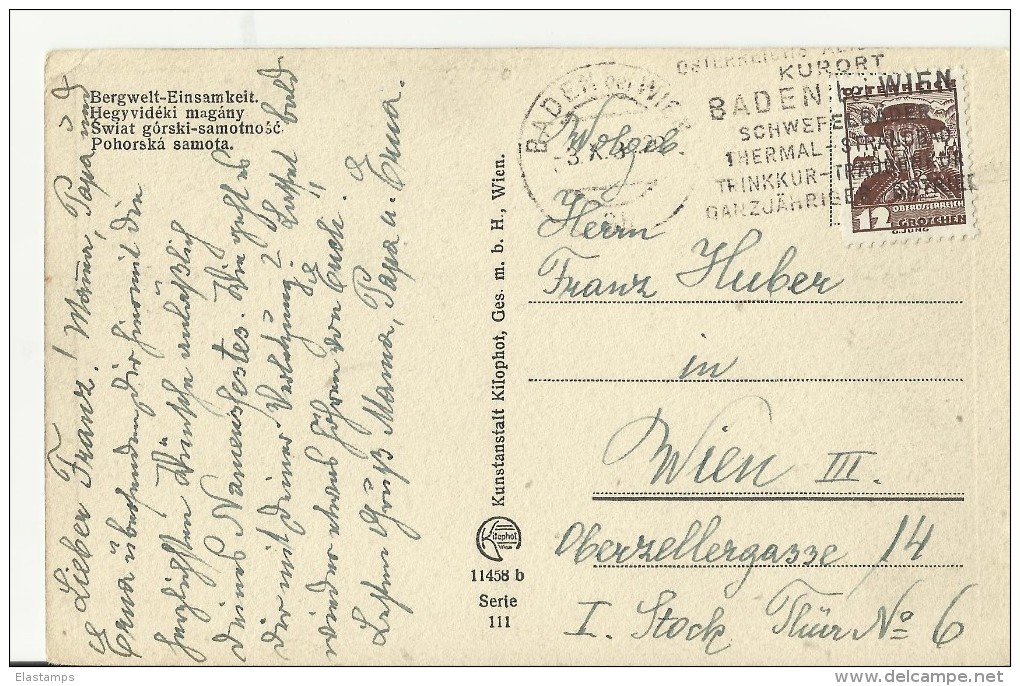 Bergwelt-Einsamkeit.
Hegyvidéki magány
Świat górski-samotność
Pohorská samota.
Lieber Franz! Mama, Papa und
Erna übersenden Dir hiermit die
herzlichsten Wünsche anläßlich
deines Namensfestes. Wie geht es
Dir mit deiner Verletzung? Laßet bald
wieder etwas hören von Euch.
Besten Gruß Mama, Papa u. Erna.
Kunstanstalt Kilophot, Ges. m. b. H., Wien.
Kilophot
Wien
11458 b
Serie
111
BADEN BEI WIEN
-3. X. 3
ÖSTERREICHS
KURORT
BADEN bei WIEN
SCHWEFELBÄDER
THERMAL-STRANDBAD
TRINKKUR-TRAUBENKUR
GANZJÄHRIGER BETRIEB
OBERÖSTERREICH
12 GROSCHEN
G. JUNG
Wolgeb.
Herrn
Franz Huber
in
Wien III.
Oberzellergasse 14
I. Stock Thür No 6
Elastamps
delcampe.net